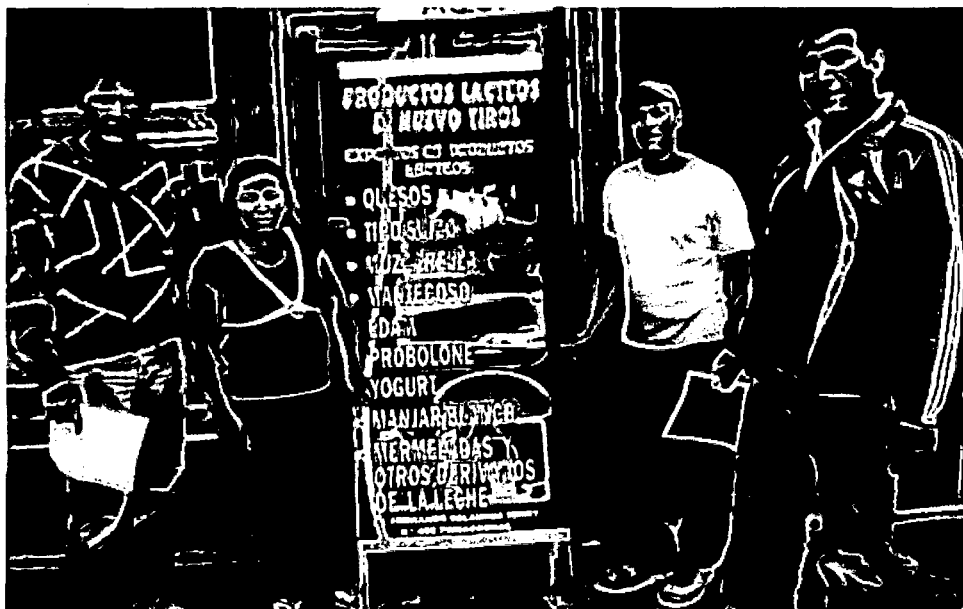 PRODUCTOS LACTEOS
DE NUEVO TIROL
EXPERTOS EN PRODUCTOS
LACTEOS:
• QUESOS
• TIPO SUIZO
• MOZZARELLA
• MANTECOSO
EDAM
PROBOLONE
YOGURT
MANJAR BLANCO
MERMELADAS Y
OTROS DERIVADOS
DE LA LECHE